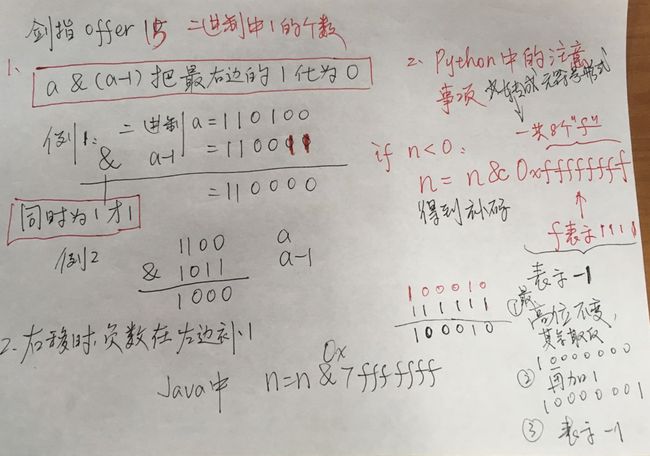 剑指offer 15 二进制中1的个数
1、
a & (a-1) 把最右边的1化为0
例1: 二进制 a=110100
& a-1 =110011
=110000
同时为1才1
例2
1100 a
& 1011 a-1
1000
2. 右移时,负数在左边补1
Java中 n=n & 0x7fffffff
2. Python中的注意
事项 转成无符号形式
一共8个"f"
if n<0:
n = n & 0xffffffff
得到补码
f表示1111
表示-1
100010
111111
100010
① 最高位不变,
其余取反
10000000
② 再加1
10000001
③ 表示-1